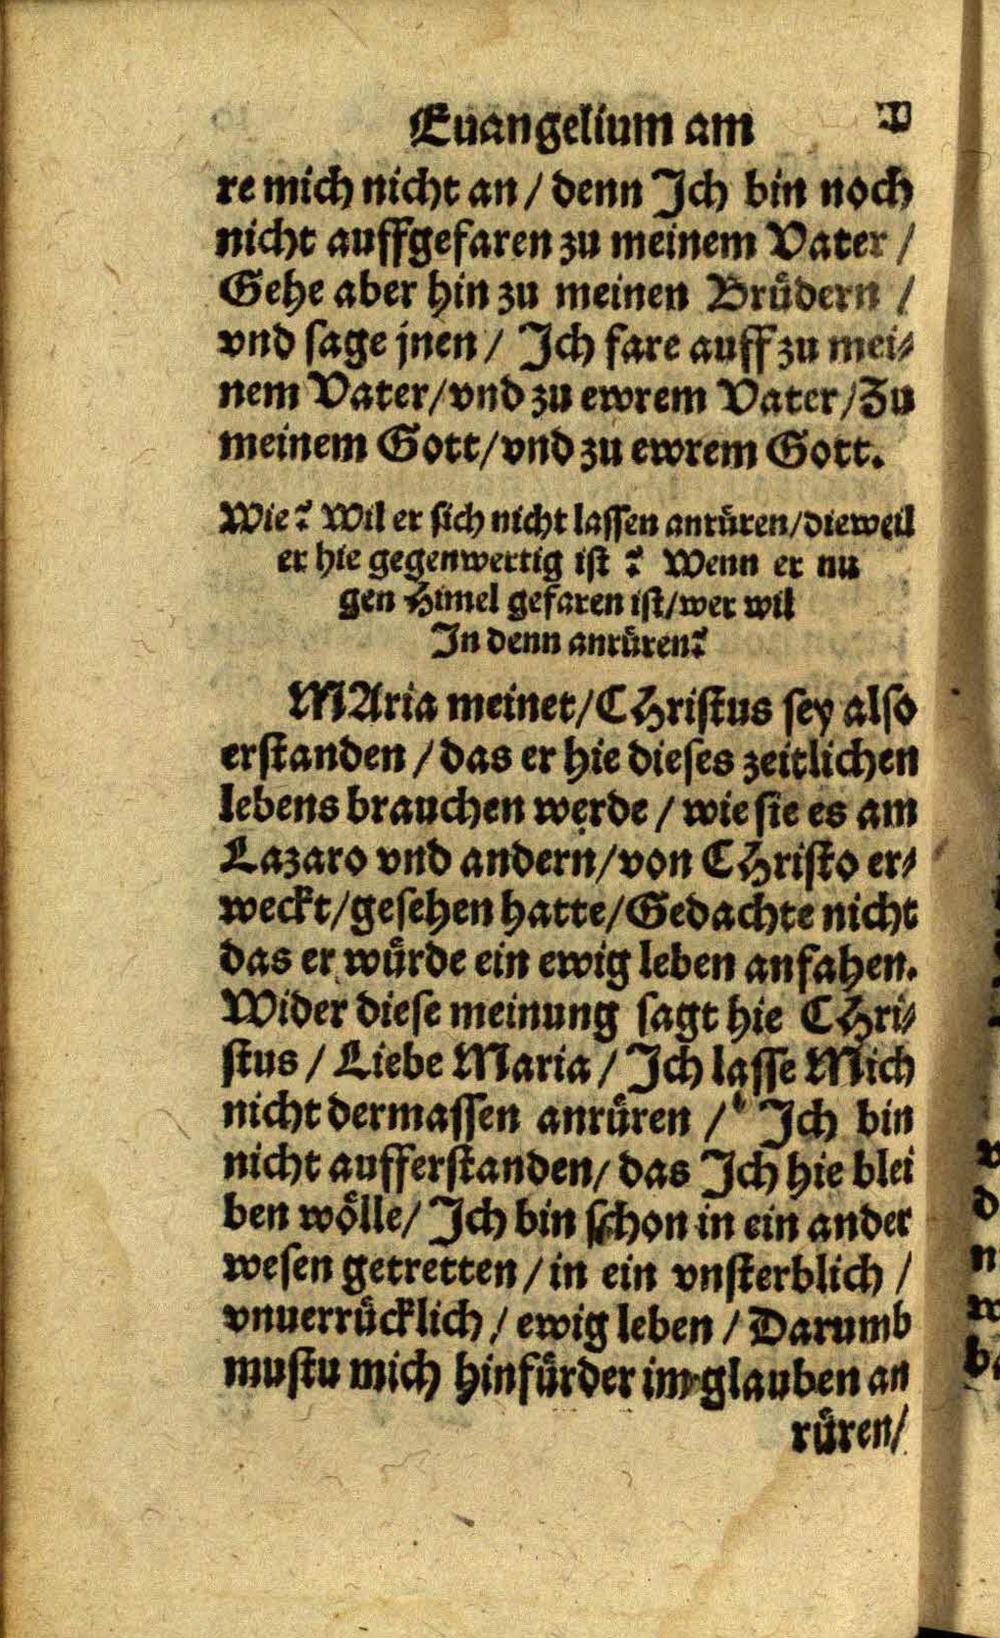 Euangelium am
re mich nicht an / denn Ich bin noch
nicht auffgefaren zu meinem Vater /
Gehe aber hin zu meinen Brüdern /
vnd sage jnen / Ich fare auff zu mei⸗
nem Vater / vnd zu ewrem Vater / Zu
meinem Gott / vnd zu ewrem Gott.
Wie? Wil er sich nicht lassen anrüren / dieweil
er hie gegenwertig ist? Wenn er nu
gen Himel gefaren ist / wer wil
In denn anrüren?
MAria meinet / CHristus sey also
erstanden / das er hie dieses zeitlichen
lebens brauchen werde / wie sie es am
Lazaro vnd andern / von CHristo er⸗
weckt / gesehen hatte / Gedachte nicht
das er würde ein ewig leben anfahen.
Wider diese meinung sagt hie CHri⸗
stus / Liebe Maria / Ich lasse Mich
nicht dermassen anrüren / Ich bin
nicht aufferstanden / das Ich hie blei
ben wölle / Ich bin schon in ein ander
wesen getretten / in ein vnsterblich /
vnuerrücklich / ewig leben / Darumb
mustu mich hinfürder im glauben an
rüren /